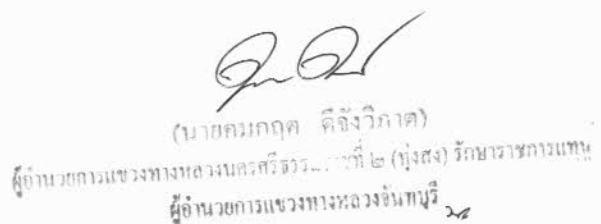 (นายคมกฤต ดีจังวิภาต)
ผู้อำนวยการแขวงทางหลวงนครศรีธรรมราชที่ ๒ (ทุ่งสง) รักษาราชการแทน
ผู้อำนวยการแขวงทางหลวงจันทบุรี